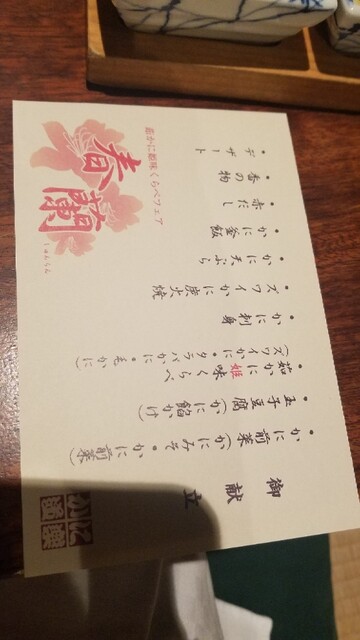 御献立
・かに前菜(かにみそ・かに前菜)
・玉子豆腐(かに餡かけ)
・茹かに姫味くらべ
(ズワイかに・タラバかに・毛かに)
・かに刺身
・ズワイかに炭火焼
・かに天ぷら
・かに釜飯
・赤だし
・香の物
・デザート
茹かに姫味くらべフェア
春蘭
しゅんらん
かに道楽